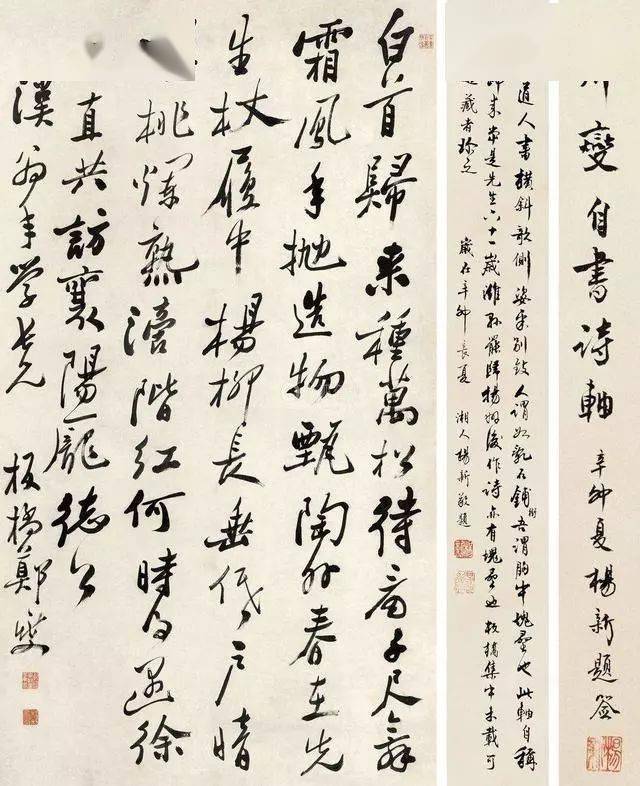 燮自書詩軸 辛卯夏楊新題簽
道人書橫斜欹側姿米別致人謂如亂石鋪街吾謂胸中塊壘也此軸自稱
歸来當是先生六十一歲濰縣罷歸揚州後作詩亦有塊壘也板橋集中未載可
藏者珍之 歲在辛卯長夏 湘人楊新敬題
白首歸来種萬松待看千尺舞
霜風年抛造物甄陶外春在先
生杖履中楊柳長垂低戶暗
桃爛熟滴階紅何時得遇徐
直共訪襄陽龐德公
漢翁年學老兄 板橋鄭燮